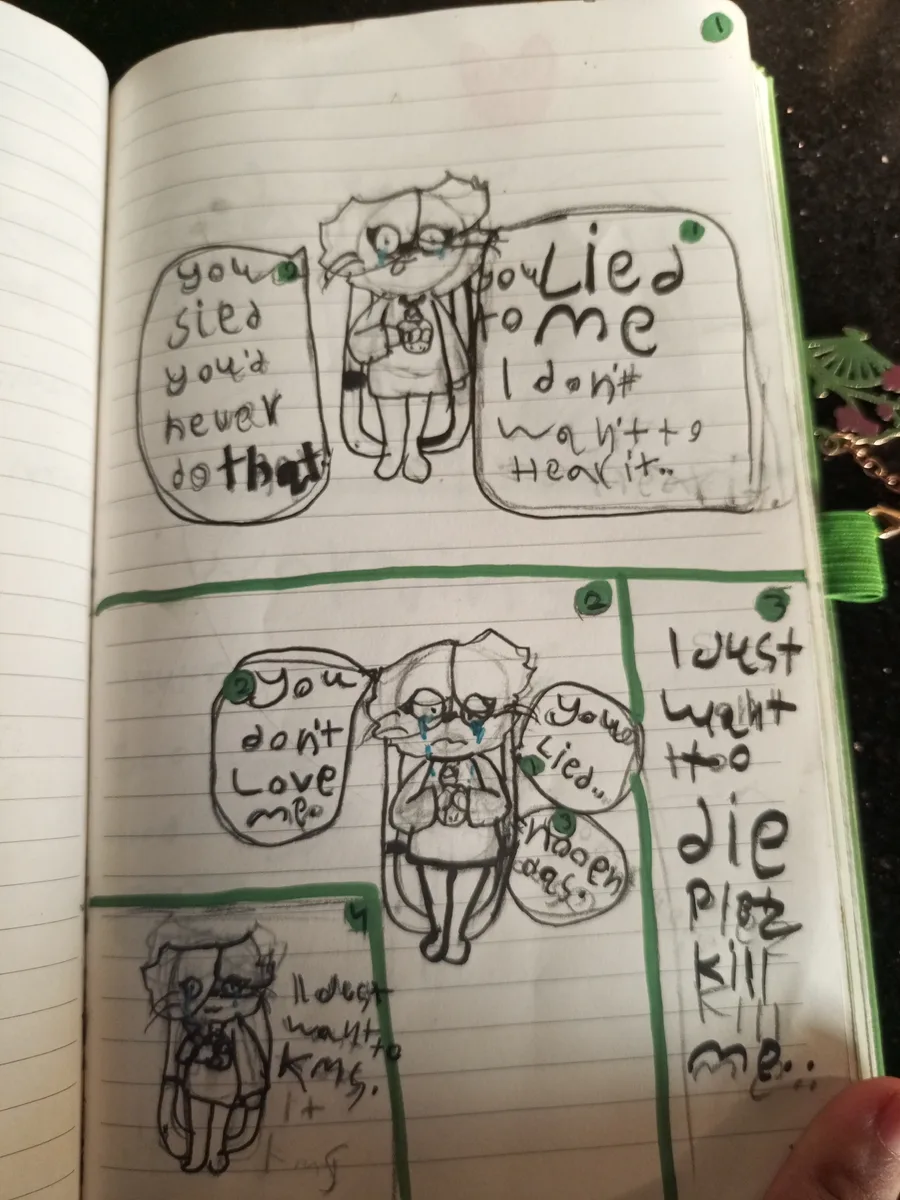 1
1
you Lied
to me
I don't
wan't to
Hear it..
2
you
sied
you'd
never
do that
2
you
Lied..
2
you
don't
Love
me.
3
3
I Just
want
too
die
kill
kill
me...
4
I Just
want to
Kms.
It
Kms